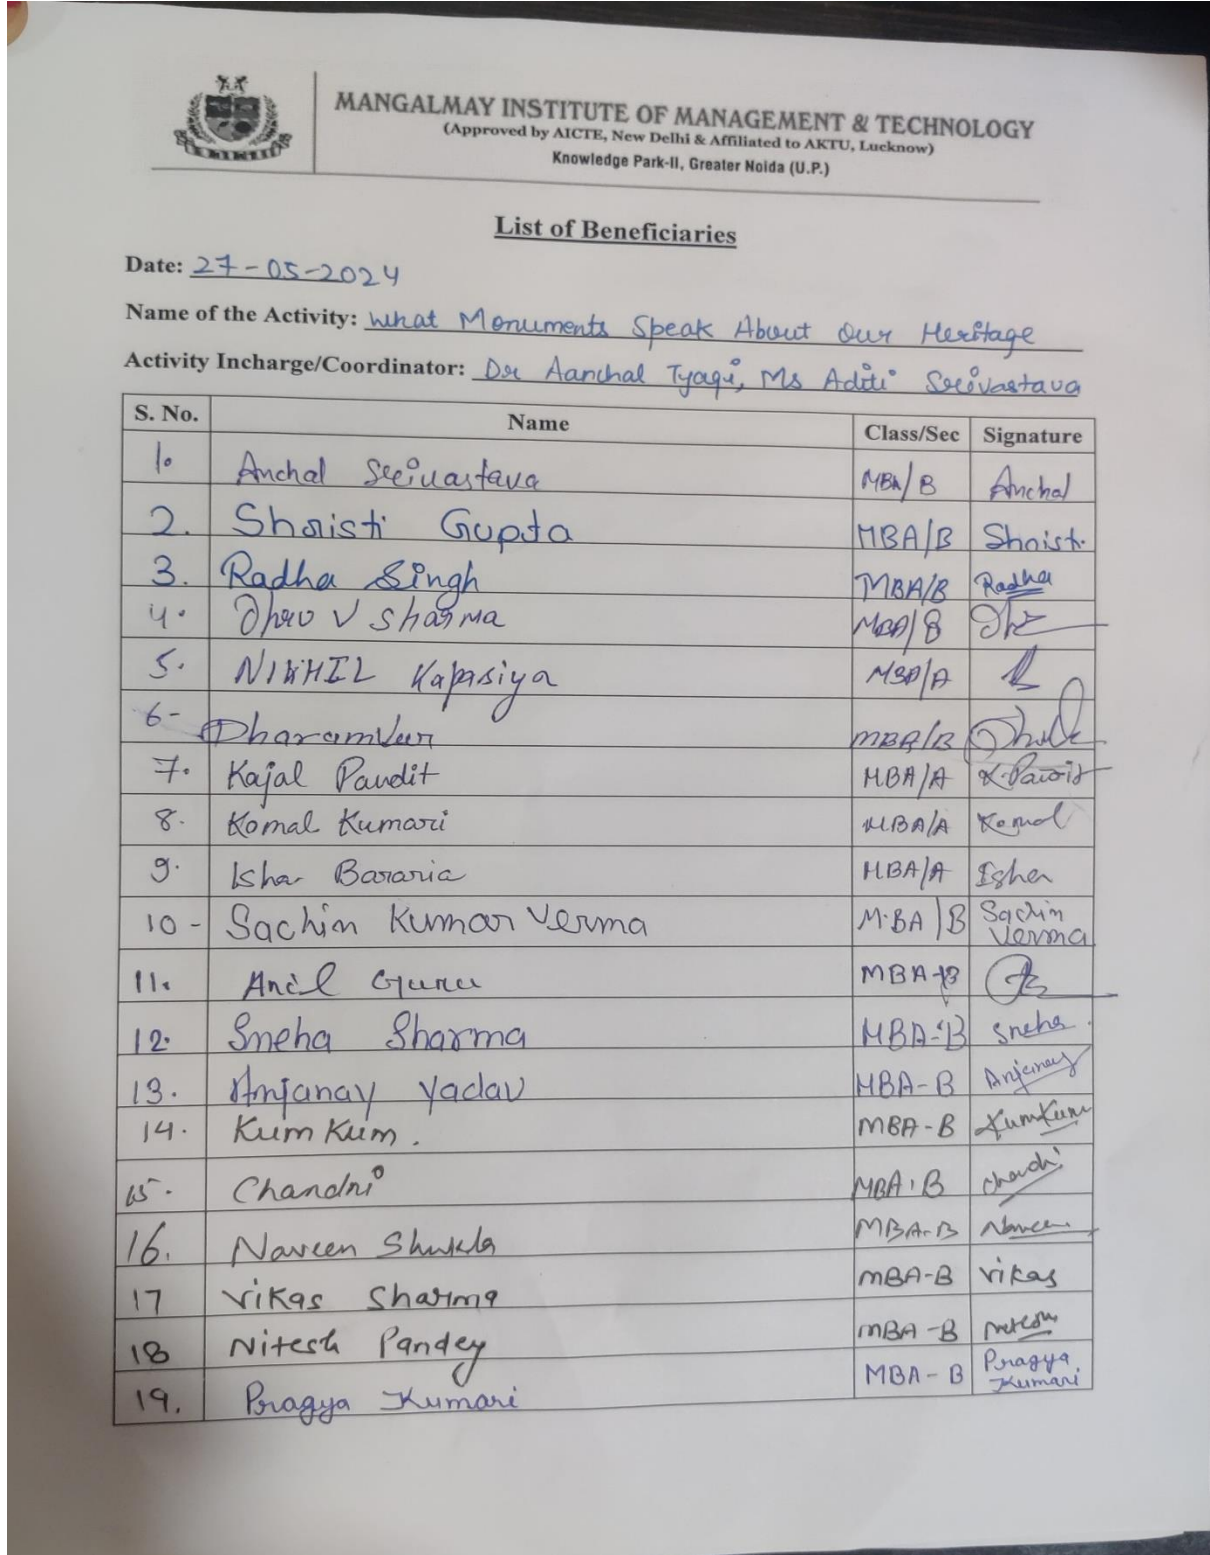 MANGALMAY INSTITUTE OF MANAGEMENT & TECHNOLOGY
(Approved by AICTE, New Delhi & Affiliated to AKTU, Lucknow)
Knowledge Park-II, Greater Noida (U.P.)
List of Beneficiaries
Date: 27-05-2024
Name of the Activity: What Monuments Speak About Our Heritage
Activity Incharge/Coordinator: Dr Aanchal Tyagi, Ms Aditi Srivastava
S. No. Name Class/Sec Signature
1. Anchal Srivastava MBA/B Anchal
2. Shristi Gupta MBA/B Shristi
3. Radha Singh MBA/B Radha
4. Dhruv Sharma MBA/B
5. NIKHIL Kapasiya MBA/A
6- Dharamveer MBA/B
7. Kajal Pandit MBA/A
8. Komal Kumari MBA/A Komal
9. Isha Bararia MBA/A Isha
10- Sachin Kumar Verma M.BA/B Sachin Verma
11. Anil Guru MBA-B
12. Sneha Sharma MBA-B Sneha
13. Anjanay Yadav MBA-B Anjanay
14. Kum Kum. MBA-B KumKum
15. Chandni MBA-B Chandni
16. Naveen Shukla MBA-B Naveen
17 Vikas Sharma MBA-B Vikas
18 Nitesh Pandey MBA-B Nitesh
19. Pragya Kumari MBA-B Pragya Kumari